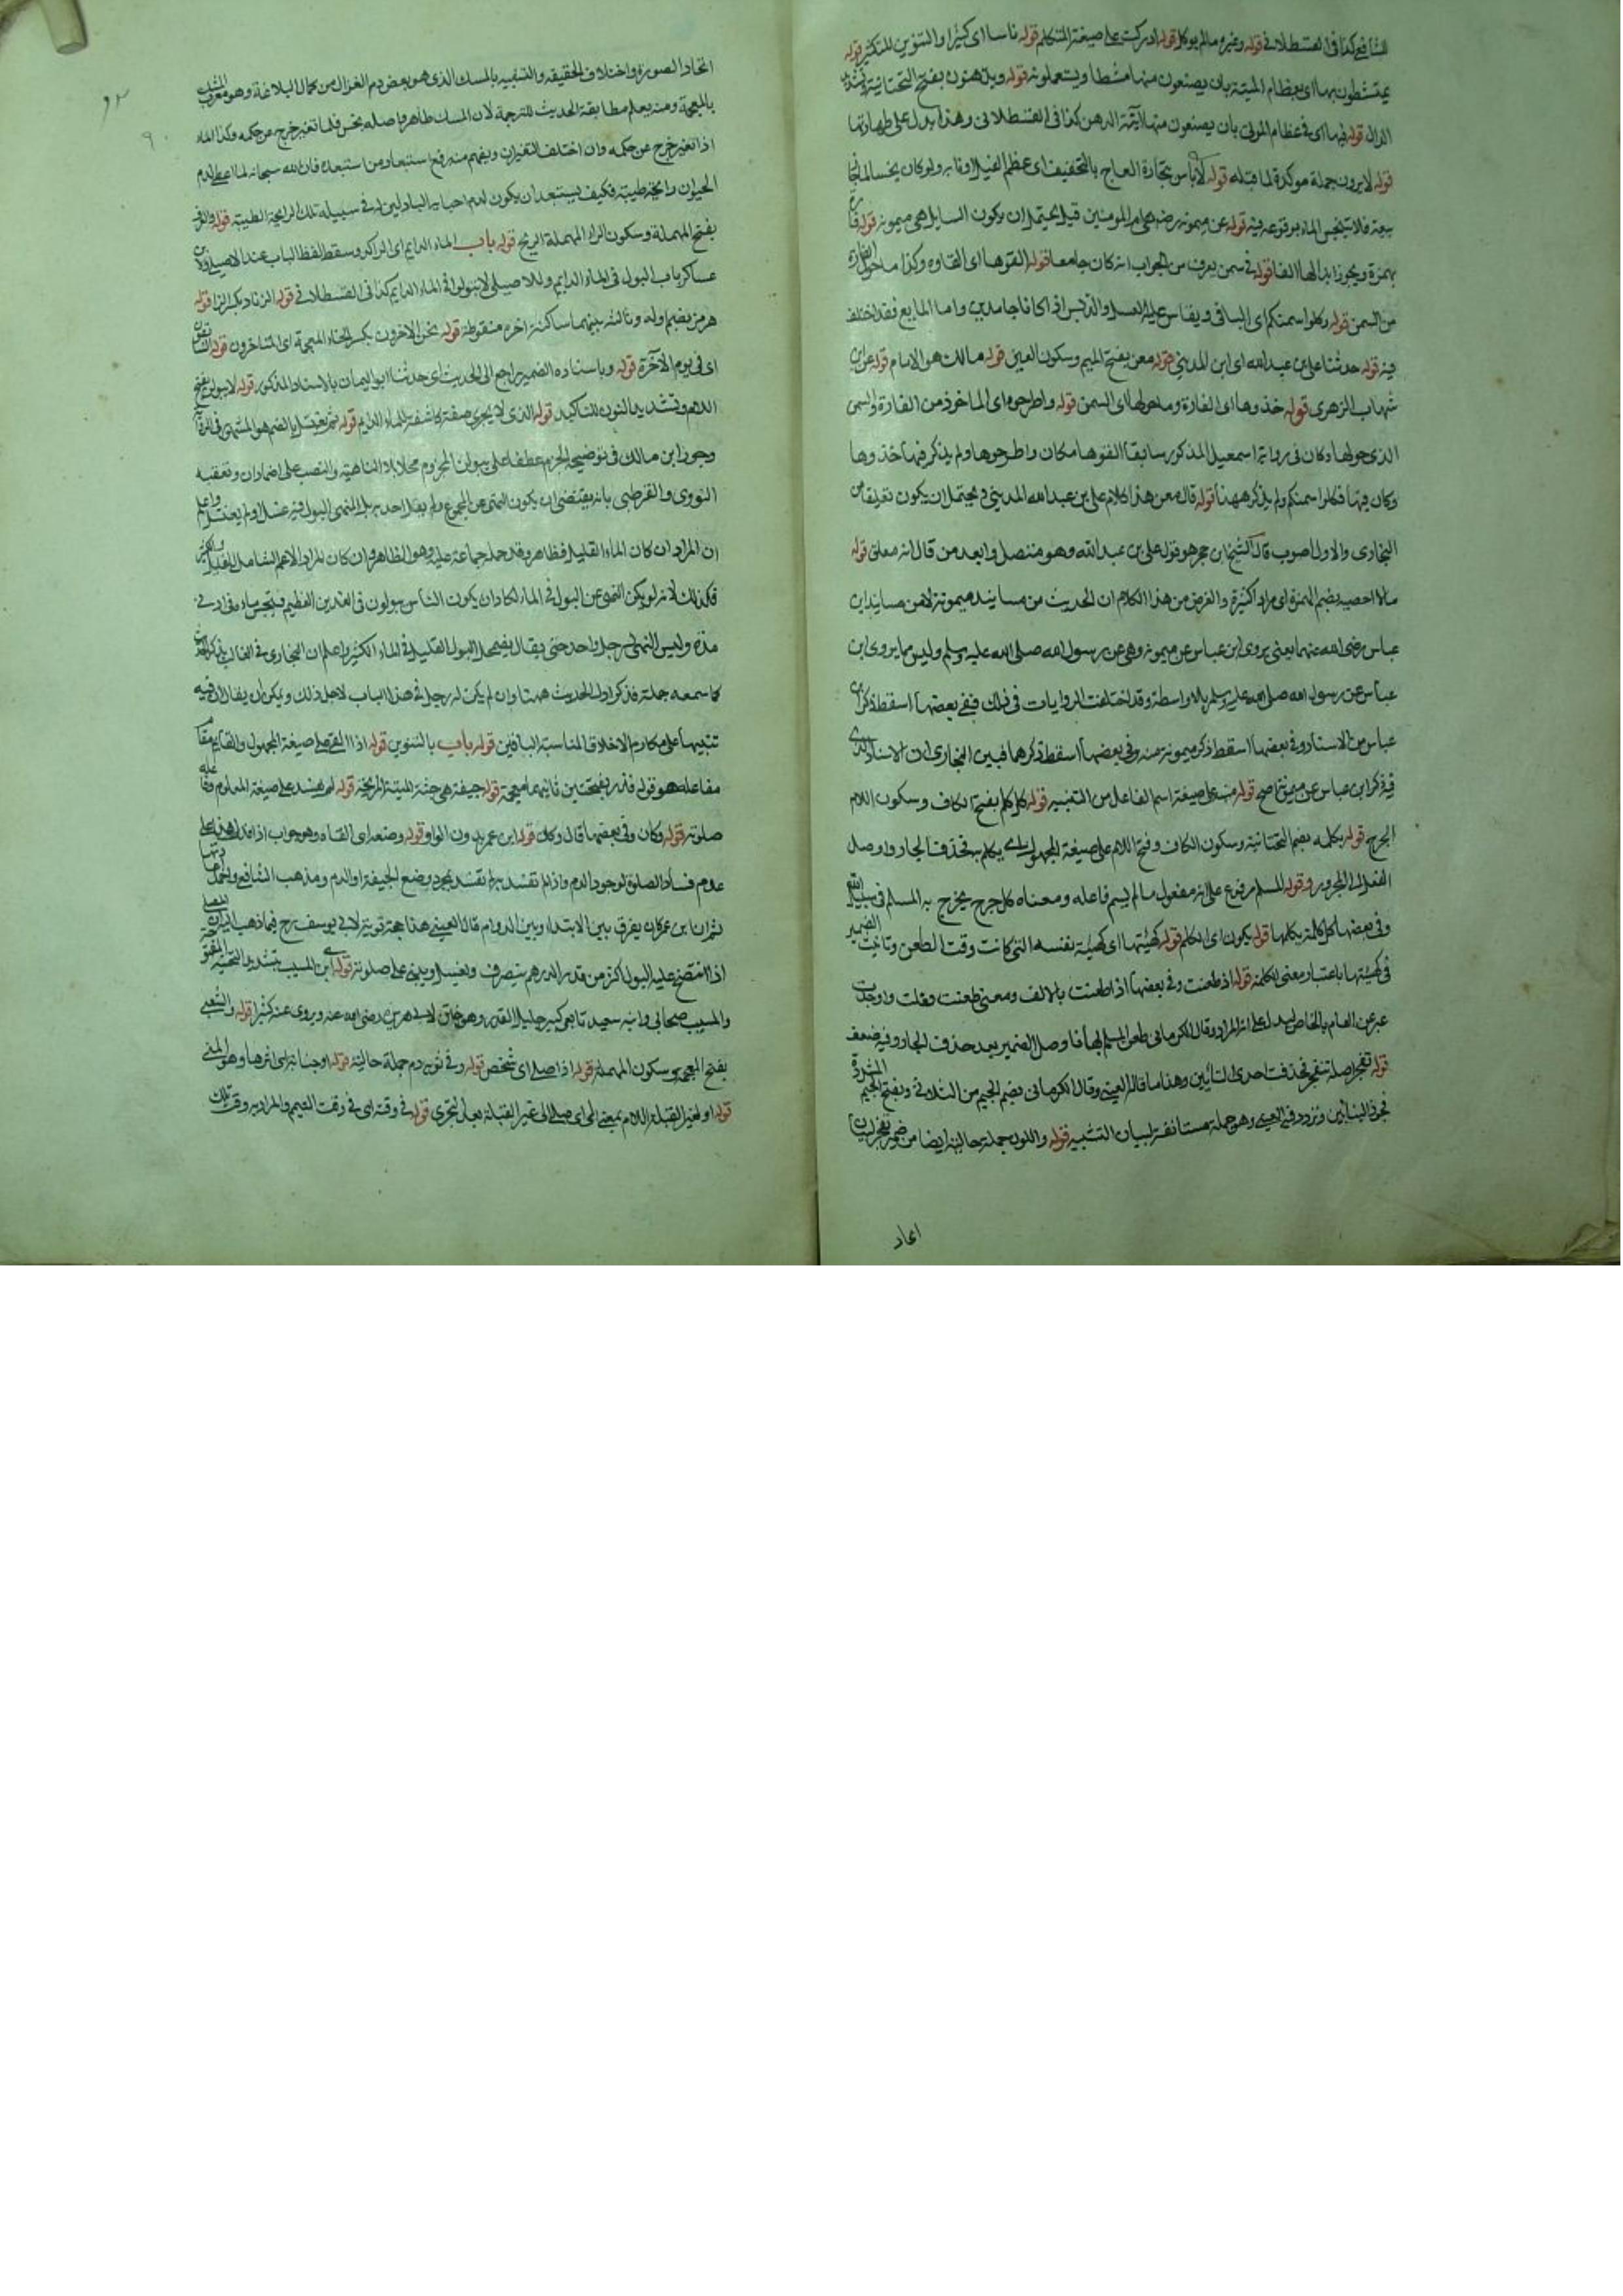 الشافعي كذا في القسطلاني قوله وغيره مما لم يوكل قوله ادركت على صيغة المتكلم قوله ناسا اى كثيرا والتنوين للتكثير قوله
يمتشطون بها اى بعظام الميتة بان يصنعون منها مشطا ويستعملونه قوله ويدهنون بفتح التحتانية وتشديد
الدال قوله فيها اى في عظام الموتى بان يصنعون منها آنية الدهن كذا في القسطلانى وهذا يدل على طهارتها
قوله لا يرون جملة موكدة لما قبله قوله لا باس بتجارة العاج بالتخفيف اى عظم الفيل او نابه ولو كان نجسا لما جاز
بيعه فلا يتنجس الماء بوقوعه فيه قوله عن ميمونة رضـ هى ام المومنين قيل يحتمل ان يكون السايل هى ميمونة قوله فارة
بهمزة ويجوز ابدالها الفا قوله في سمن يعرف من الجواب انه كان جامدا قوله القوها اى الفارة وكذا ما حول الفارة
من السمن قوله وكلوا سمنكم اى الباقى ويقاس عليه العسل والدبس اذا كانا جامدين واما المايع فقد اختلف
فيه قوله حدثنا على بن عبد الله اى ابن المدينى قوله معن بفتح الميم وسكون العين قوله مالك هو الامام قوله عن ابن
شهاب الزهرى قوله خذوها اى الفارة وما حولها اى السمن قوله واطرحوه اى الماخوذ من الفارة والسمن
الذى حولها وكان فى رواية اسمعيل المذكور سابقا القوها مكان واطرحوها ولم يذكر فيها خذوها
وكان فيها فكلوا سمنكم ولم يذكر ههنا قوله قال معن هذا كلام على بن عبد الله المدينى ويحتمل ان يكون تعليقا من
البخارى والاول اصوب قال الشيخ ابن حجر هو قول على بن عبد الله وهو متصل وابعد من قال انه معلق قوله
مالا احصيه بضم الهمزة اى مرارا كثيرة والغرض من هذا الكلام ان الحديث من مسانيد ميمونة لا من مسانيد ابن
عباس رضى الله عنهما يعنى يروى ابن عباس عن ميمونة وهى عن رسول الله صلى الله عليه وسلم وليس مما يروى ابن
عباس عن رسول الله صلى الله عليه وسلم بلا واسطة وقد اختلفت الروايات فى ذلك ففى بعضها اسقط ذكر ابن
عباس من الاسناد وفى بعضها اسقط ذكر ميمونة منه وفى بعضها اسقط ذكرهما فبين البخارى ان الاسناد الذى
فيه ذكر ابن عباس عن ميمونة اصح قوله منبه على صيغة اسم الفاعل من التنبيه قوله كل كلم بفتح الكاف وسكون اللام
الجرح قوله يكلمه بضم التحتانية وسكون الكاف وفتح اللام على صيغة المجهول اى يكلم به فحذف الجار واوصل
الفعل الى المجرور وقوله المسلم مرفوع على انه مفعول ما لم يسم فاعله ومعناه كل جرح يخرج به المسلم فى سبيل الله
وفى بعضها كل كلمة يكلمها قوله يكون اى الكلم قوله كهيئتها اى كهيئة نفسه التى كانت وقت الطعن وتانيث الضمير
فى كهيئتها باعتبار معنى الكلمة قوله اذ طعنت وفى بعضها اذا طعنت بالالف ومعنى طعنت
عبر عن العام بالخاص ليدل على انه المراد وقال الكرمانى طعن المسلم بها فاوصل الضمير بعد حذف الجار وفيه ضعف
قوله تفجر اصله تتفجر فحذفت احدى التائين وهذا ما قاله العينى وقال الكرمانى بضم الجيم من الثلاثى وبفتح الجيم المشددة
وهو جملة مستانفة لبيان التشبيه قوله واللون جملة حالية ايضا من ضمير تفجر لبيان
اتحاد
اتحاد الصورة واختلاف الحقيقة والتشبيه بالمسك الذى هو بعض دم الغزال من كمال البلاغة وهو معرب المشك
بالمعجمة ومنه يعلم مطابقة الحديث للترجمة لان المسك طاهر واصله نجس فلما تغير خرج عن حكمه وكذا الماء
اذا تغير خرج عن حكمه وان اختلف التغيران ويفهم منه رفع استبعاد من استبعده فان الله سبحانه لما اعطى لدم
الحيوان رائحة طيبة فكيف يستبعد ان يكون لدم احبابه الباذلين له في سبيله تلك الرائحة الطيبة قوله والعرف
بفتح المهملة وسكون الراء المهملة الريح قوله باب الماء الدايم اى الراكد وسقط لفظ الباب عند الاصيلى ولابن
عساكر باب البول فى الماء الدايم وللاصيلى لا تبولوا فى الماء الدايم كذا فى القسطلانى قوله الزناد بكسر الزا قوله
هرمز بضم اوله وثالثه بينهما ساكنة اخره منقوطة قوله نحن الاخرون بكسر الخاء المعجمة اى المتاخرون قوله السابقون
اى فى يوم الآخرة قوله وباسناده الضمير راجع الى الحديث اى حدثنا ابو اليمان بالاسناد المذكور قوله لا يبولن بفتح
اللام وتشديد النون للتاكيد قوله الذى لا يجرى صفة كاشفة للماء الدايم قوله ثم يغتسل بالضم هو المشهور فى الرواية
وجوز ابن مالك فى توضيحه الجزم عطفا على يبولن المجزوم محلا بلا الناهية والنصب على اضمار ان وتعقبه
النووى والقرطبى بانه يقتضى ان يكون النهى عن المجموع ولم يقل احد به بل المنهى البول فيه غسل او لم يغتسل واعلم
ان المراد ان كان الماء القليل فظاهر وقد حمله جماعة عليه وهو الظاهر وان كان المراد الاعم الشامل للقليل والكثير
فكذلك لانه لو لم يكن النهى عن البول فى الماء لكاد ان يكون الناس يبولون فى الغدير العظيم فيتنجس ماءه فى ادنى
مدة وليس النهى لرجل واحد حتى يقال يضمحل البول القليل فى الماء الكثير واعلم ان البخارى فى الغالب يذكر الحديث
كما سمعه جملة فذكر اول الحديث ههنا وان لم يكن له دخل فى هذا الباب لاجل ذلك ويمكن ان يقال ان فيه
تنبيها على مكارم الاخلاق المناسبة قوله باب بالتنوين قوله اذا القى على صيغة المجهول والقايم مقام
فاعله هو قوله قذر بفتحتين ثانيهما معجمة قوله جيفة هى جثة الميتة المريحة قوله لم يفسد على صيغة المعلوم وفاعله
صلوته قوله وكان وفى بعضها قال وكان قوله ابن عمر بدون الواو قوله وضعه اى القاه وهو جواب اذا فدل هذا على
عدم فساد الصلوة لوجود الدم واذا لم تفسد به لم تفسد بمجرد وضع الجيفة او الدم ومذهب الشافعى واحمد
ابن عمر كان يفرق بين الابتداء وبين الدوام قال العينى هذا حجة قوية لابى يوسف رح فيما ذهب اليه ان المصلى
اذا انتضح عليه البول اكثر من قدر الدرهم ينصرف ويغسل ويبنى على صلوته قوله ابن المسيب بتشديد التحتية المفتوحة
والمسيب صحابى وابنه سعيد تابعى كبير جليل القدر وهو ختن لابى هريرة رضى الله عنه ويروى عنه كثيرا قوله والشعبى
بفتح المعجمة وسكون المهملة قوله اذا صلى اى شخص قوله وفى ثوبه دم جملة حالية قوله او جنابة اى اثرها وهو المنى
قوله او لغير القبلة اللام بمعنى الى اى صلى الى غير القبلة بعد التحرى قوله فى وقته اى فى وقت التيمم والمراد به وقت تلك